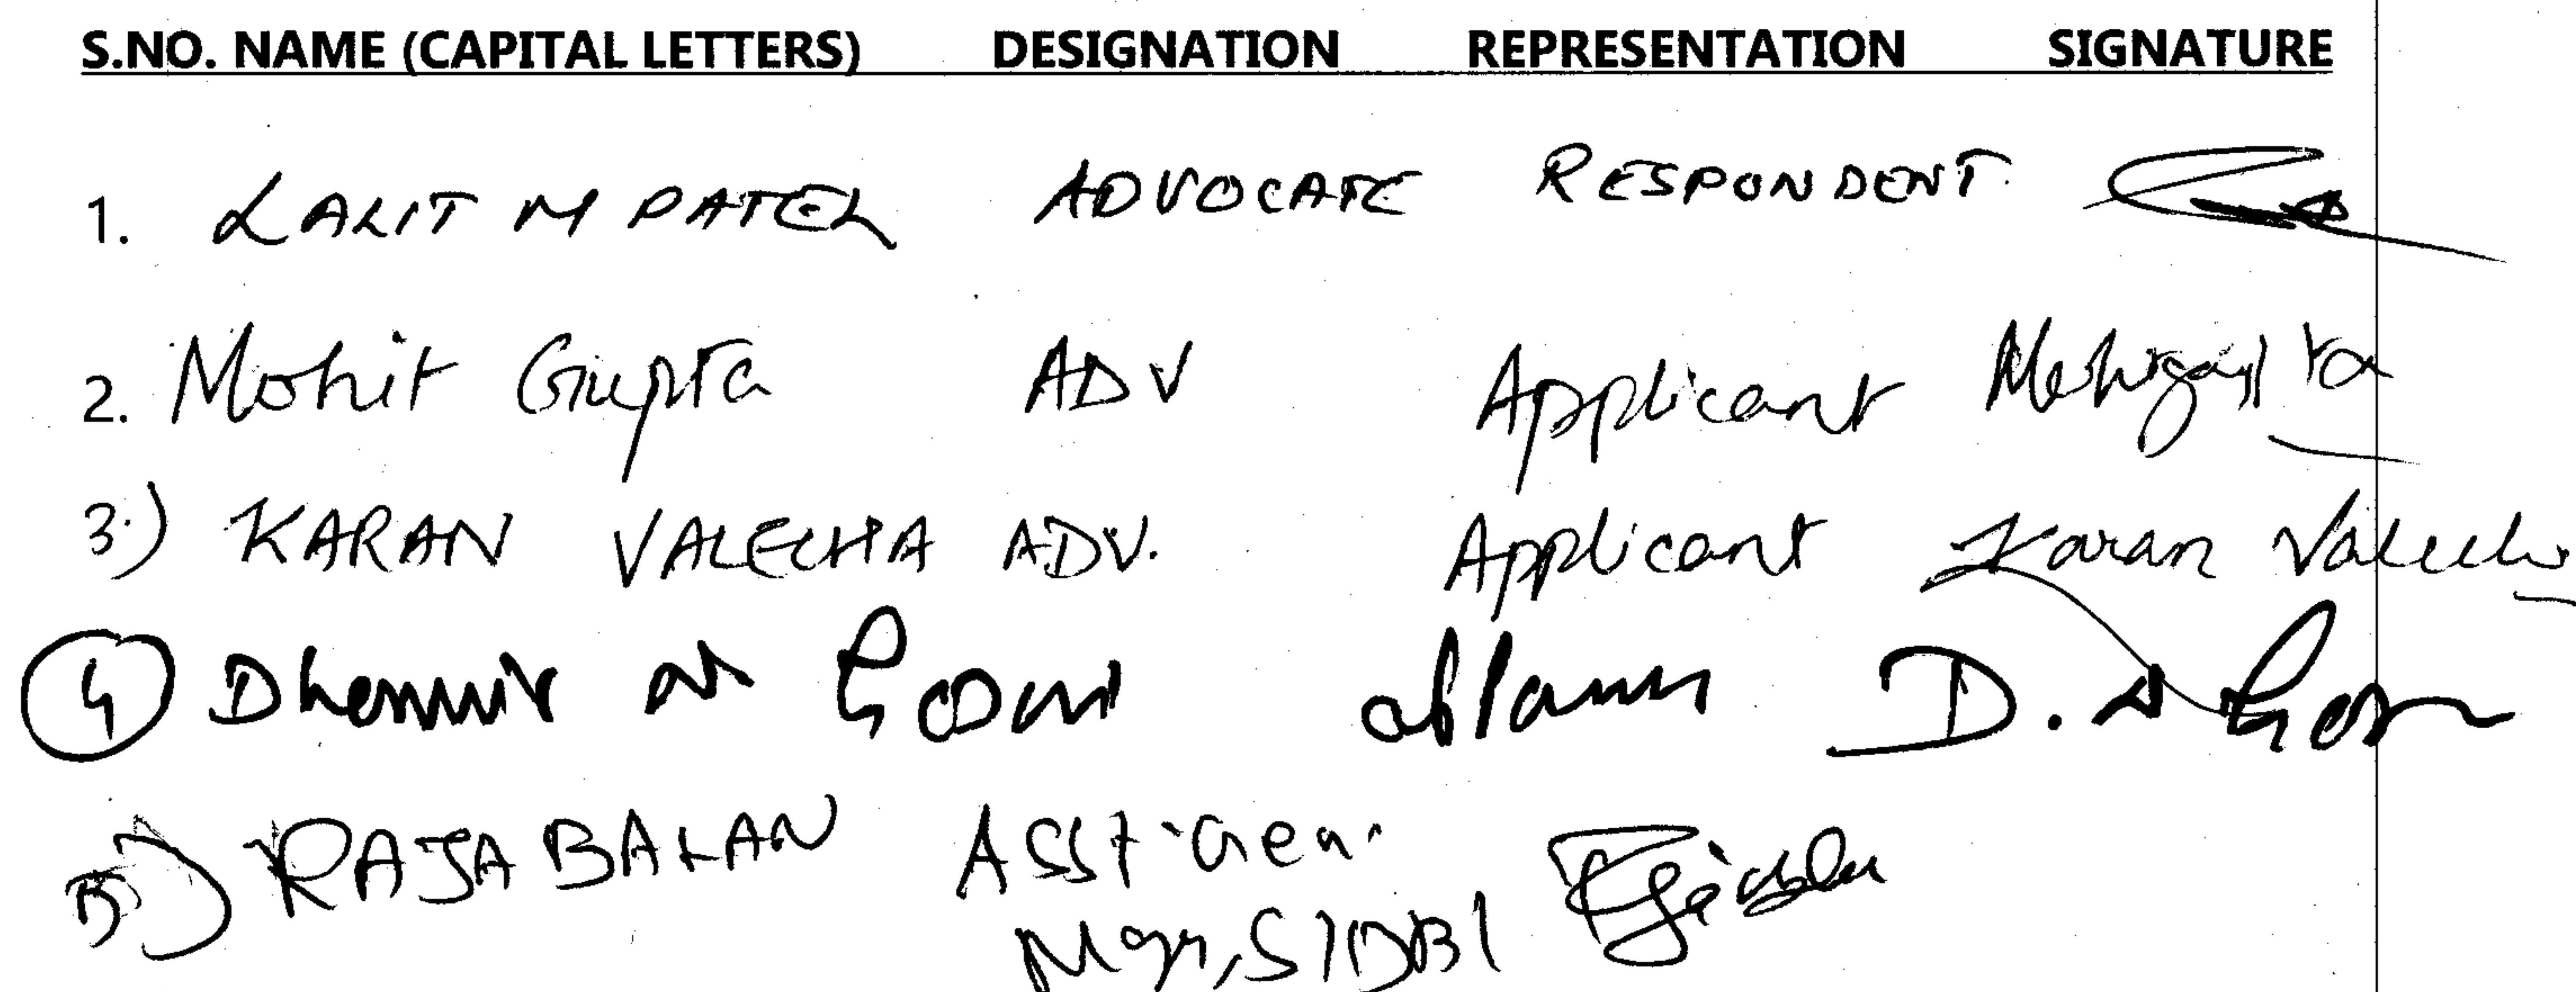 S.NO. NAME (CAPITAL LETTERS) DESIGNATION REPRESENTATION SIGNATURE
1. LALIT M PATEL ADVOCATE RESPONDENT
2. Mohit Gupta ADV Applicant
3.) KARAN VALECHA ADV. Applicant Karan Valecha
4 D.
5) RAJA BALAN Asst. Gen.
Mgr, SIDBI